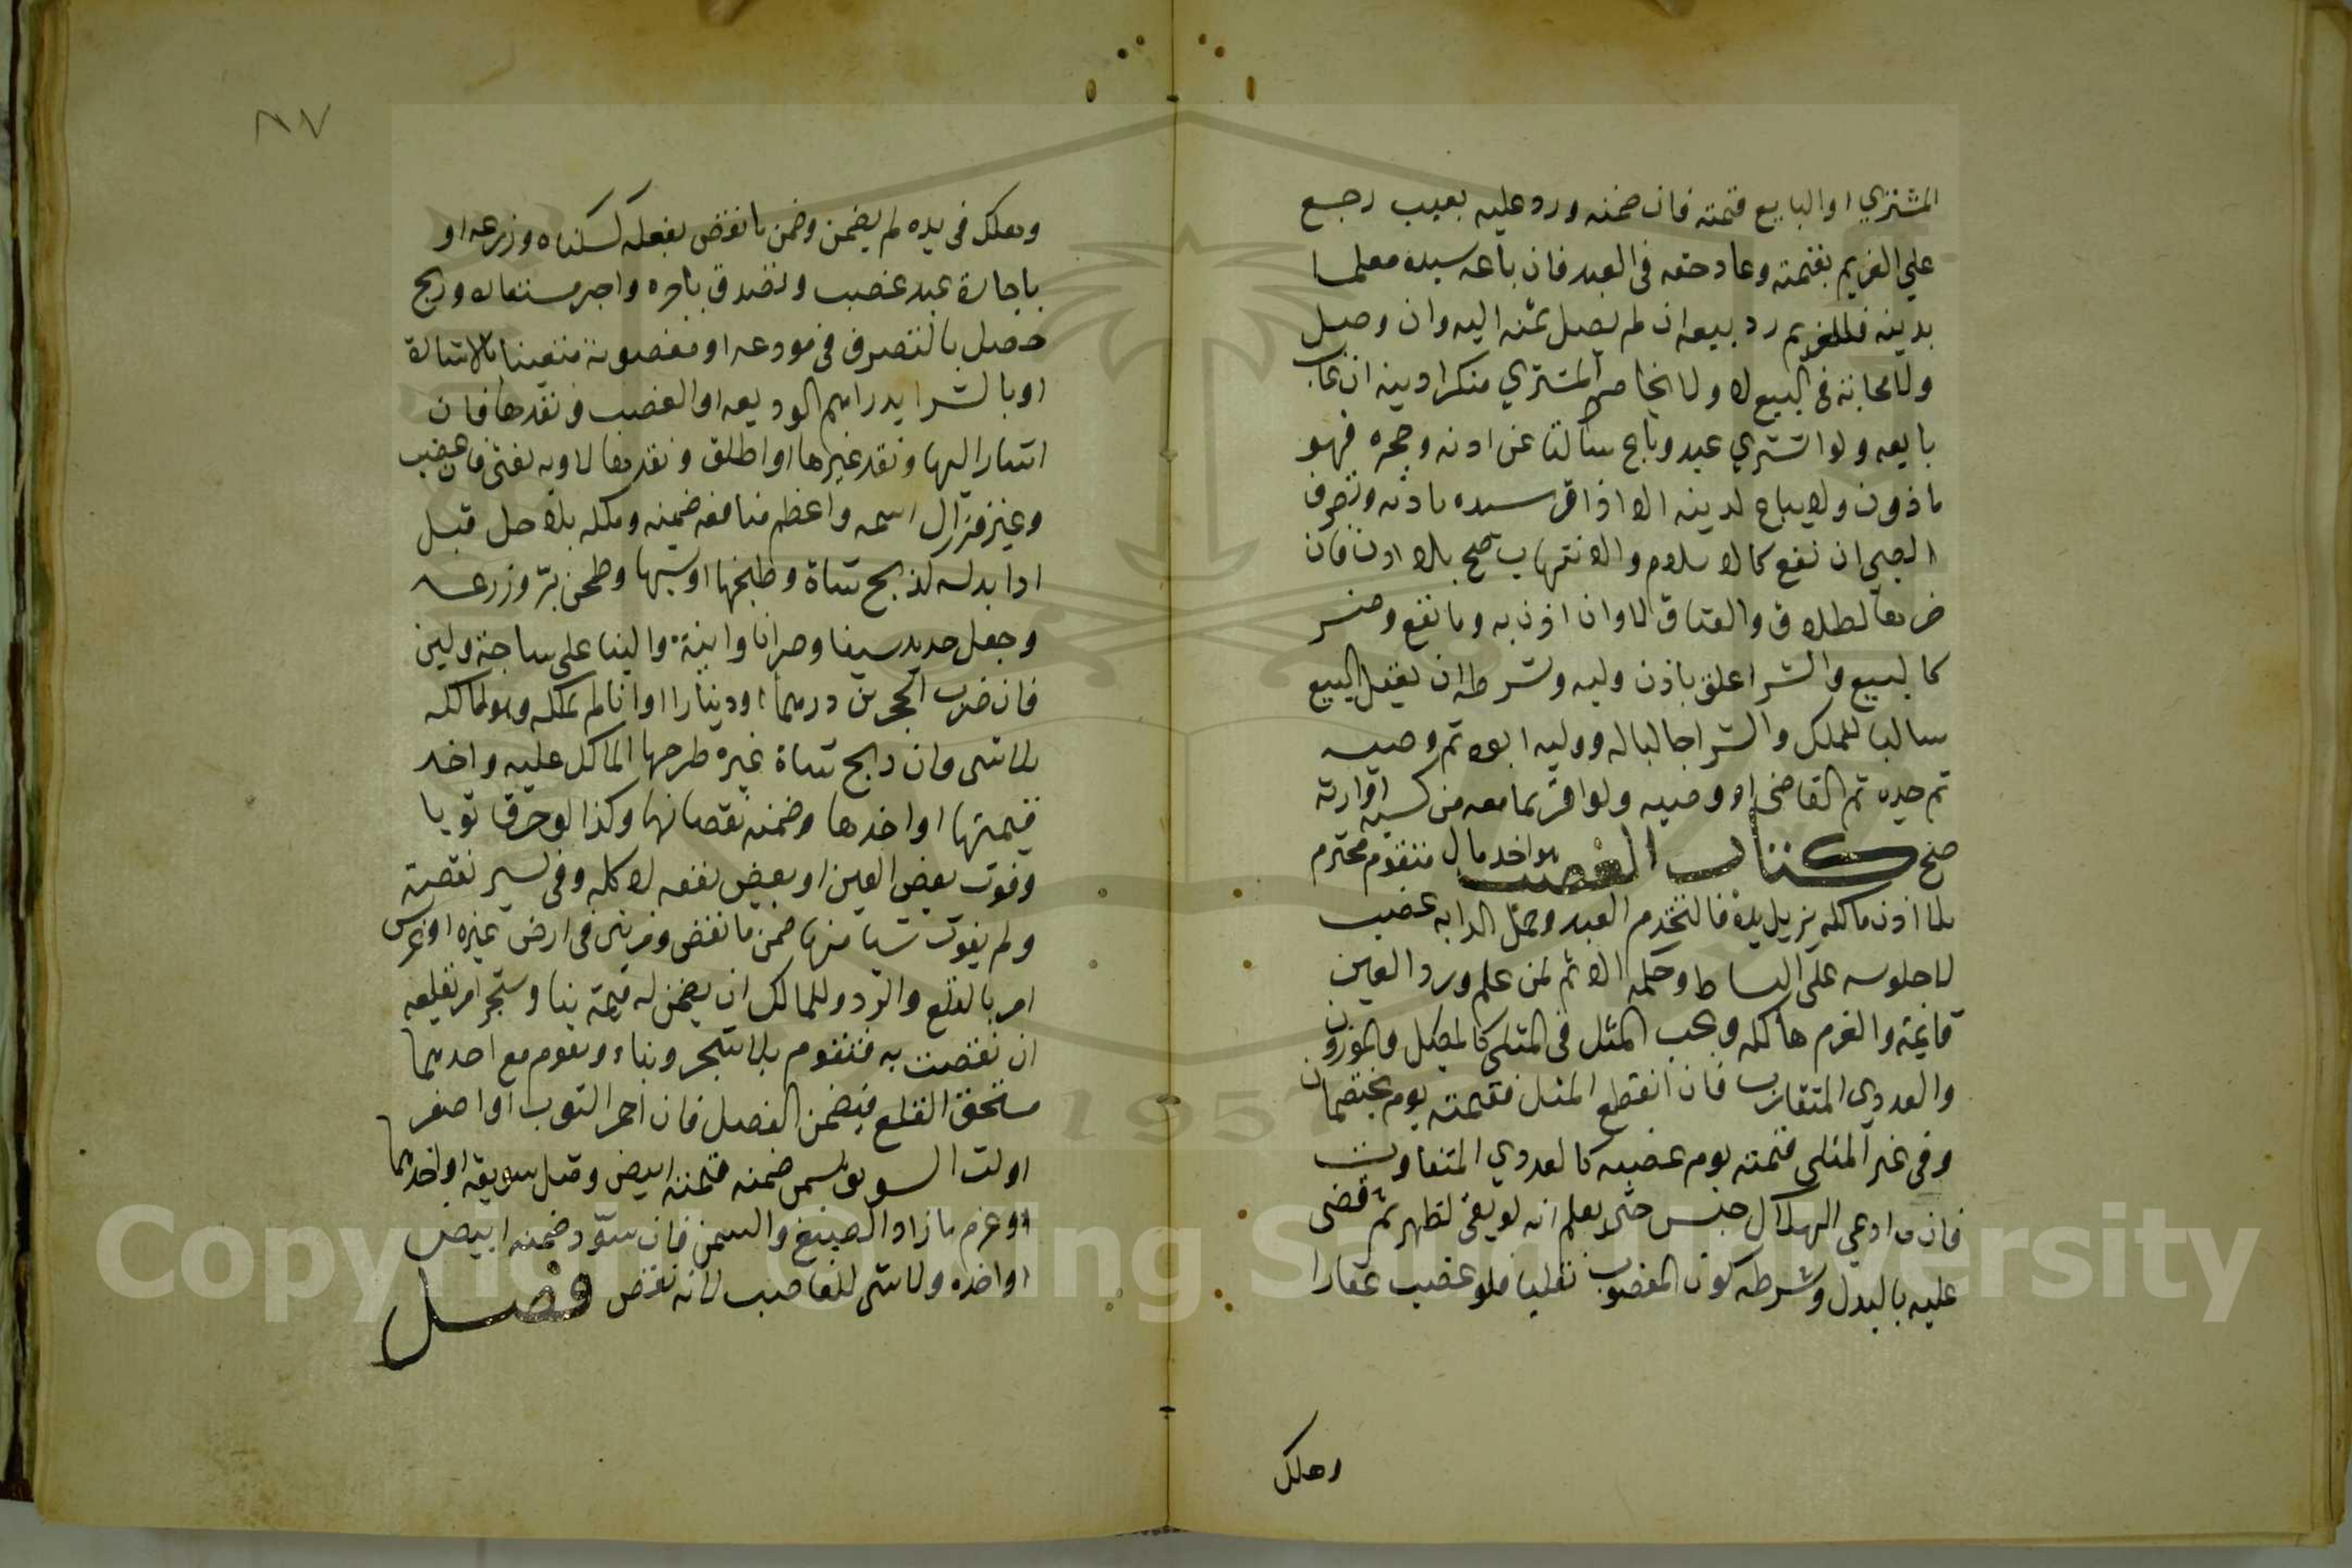 المشتري او البايع قيمته فان ضمنه ورد عليه بعيب رجع
علي الغريم بقيمته وعاد حقه في العبد فان باعه سيده معلما
بدينه فللغريم رد بيعه ان لم يصل ثمنه اليه وان وصل
ولا محاباة في البيع لا ولا يخاصم المشتري منكرا دينه ان غاب
بايعه ولو اشتري عبد وباع ساكتا عن اذنه وحجره فهو
ماذون ولا يباع لدينه الا اذا اقر سيده باذنه وتصرف
الصبي ان نفع كالاسلام والاتهاب صح بلا اذن فان
ضر كالطلاق والعتاق لا وان اذن به وما نفع وضر
كالبيع والشرا علق باذن وليه وشرطه ان يعقل البيع
سالبا للملك والشرا جالبا له ووليه ابوه ثم وصيه
ثم جده ثم القاضي او وصيه ولو اقر بما معه من كسبه او ارثه
صح كتاب الغصب هو اخد مال متقوم محترم
بلا اذن مالكه يزيل يده فالتخدم العبد وحمل الدابه غصب
لا جلوسه علي البساط وحكمه الاثم لمن علم ورد العين
قايمة والغرم هالكه ويجب المثل في المثلي كالمكيل والموزون
والعددي المتقارب فان انقطع المثل فقيمته يوم يختصمان
وفي غير المثلي قيمته يوم غصبه كالعددي المتفاوت
فان ادعي الهلاك حبس حتي يعلم انه لو بقي لظهر ثم قضي
عليه بالبدل وشرطه كون المغصوب نقليا فلو غصب عقارا
وهلك
٨٧
وهلك في يده لم يضمن وضمن ما نقض بفعله كسكناه وزرعه او
باجارة عبد غصب وتصدق باجره واجر مستعاره وربح
حصل بالتصرف في مودعه او مغصوبه متعينا بالاشارة
او بالشرا بدراهم الوديعه او الغصب ونقدها فان
اشار اليها ونقد غيرها او اطلق ونقدها لا وبه يفتي فان غصب
وغير فزال اسمه واعظم منافعه ضمنه وملكه بلا حل قبل
ادا بدله كذبح شاة وطبخها او شيها وطحن بر وزرعه
وجعل حديد سيفا وصفر انا وابنية والبنا علي ساجة ولبن
فان ضرب الحجرين درهما او دينارا او انا لم يملكه وهو لمالكه
بلا شي فان ذبح شاة غيره طرحها المالك عليه واخد
قيمتها او اخدها وضمنه نقصانها وكذا لو حرق ثوبا
وفوت بعض العين او بعض نفعه لا كله وفي يسير نقصه
ولم يفوت شيا منها ضمن ما نقض ومن بني في ارض غيره او غرس
امر بالقلع والرد وللمالك ان يضمن له قيمة بنا وشجر امر بقلعه
ان نقصت به فتقوم بلا شجر وبناء وتقوم مع احدهما
مستحق القلع فيضمن الفضل فان احمر الثوب او اصفر
او لت السويق بسمن ضمنه قيمته ابيض ومثل سويقه او اخدهما
وغرم ما زاد الصبغ والسمن فان سود ضمنه ابيض
او اخذه ولا شي للغاصب لانه نقض فصل